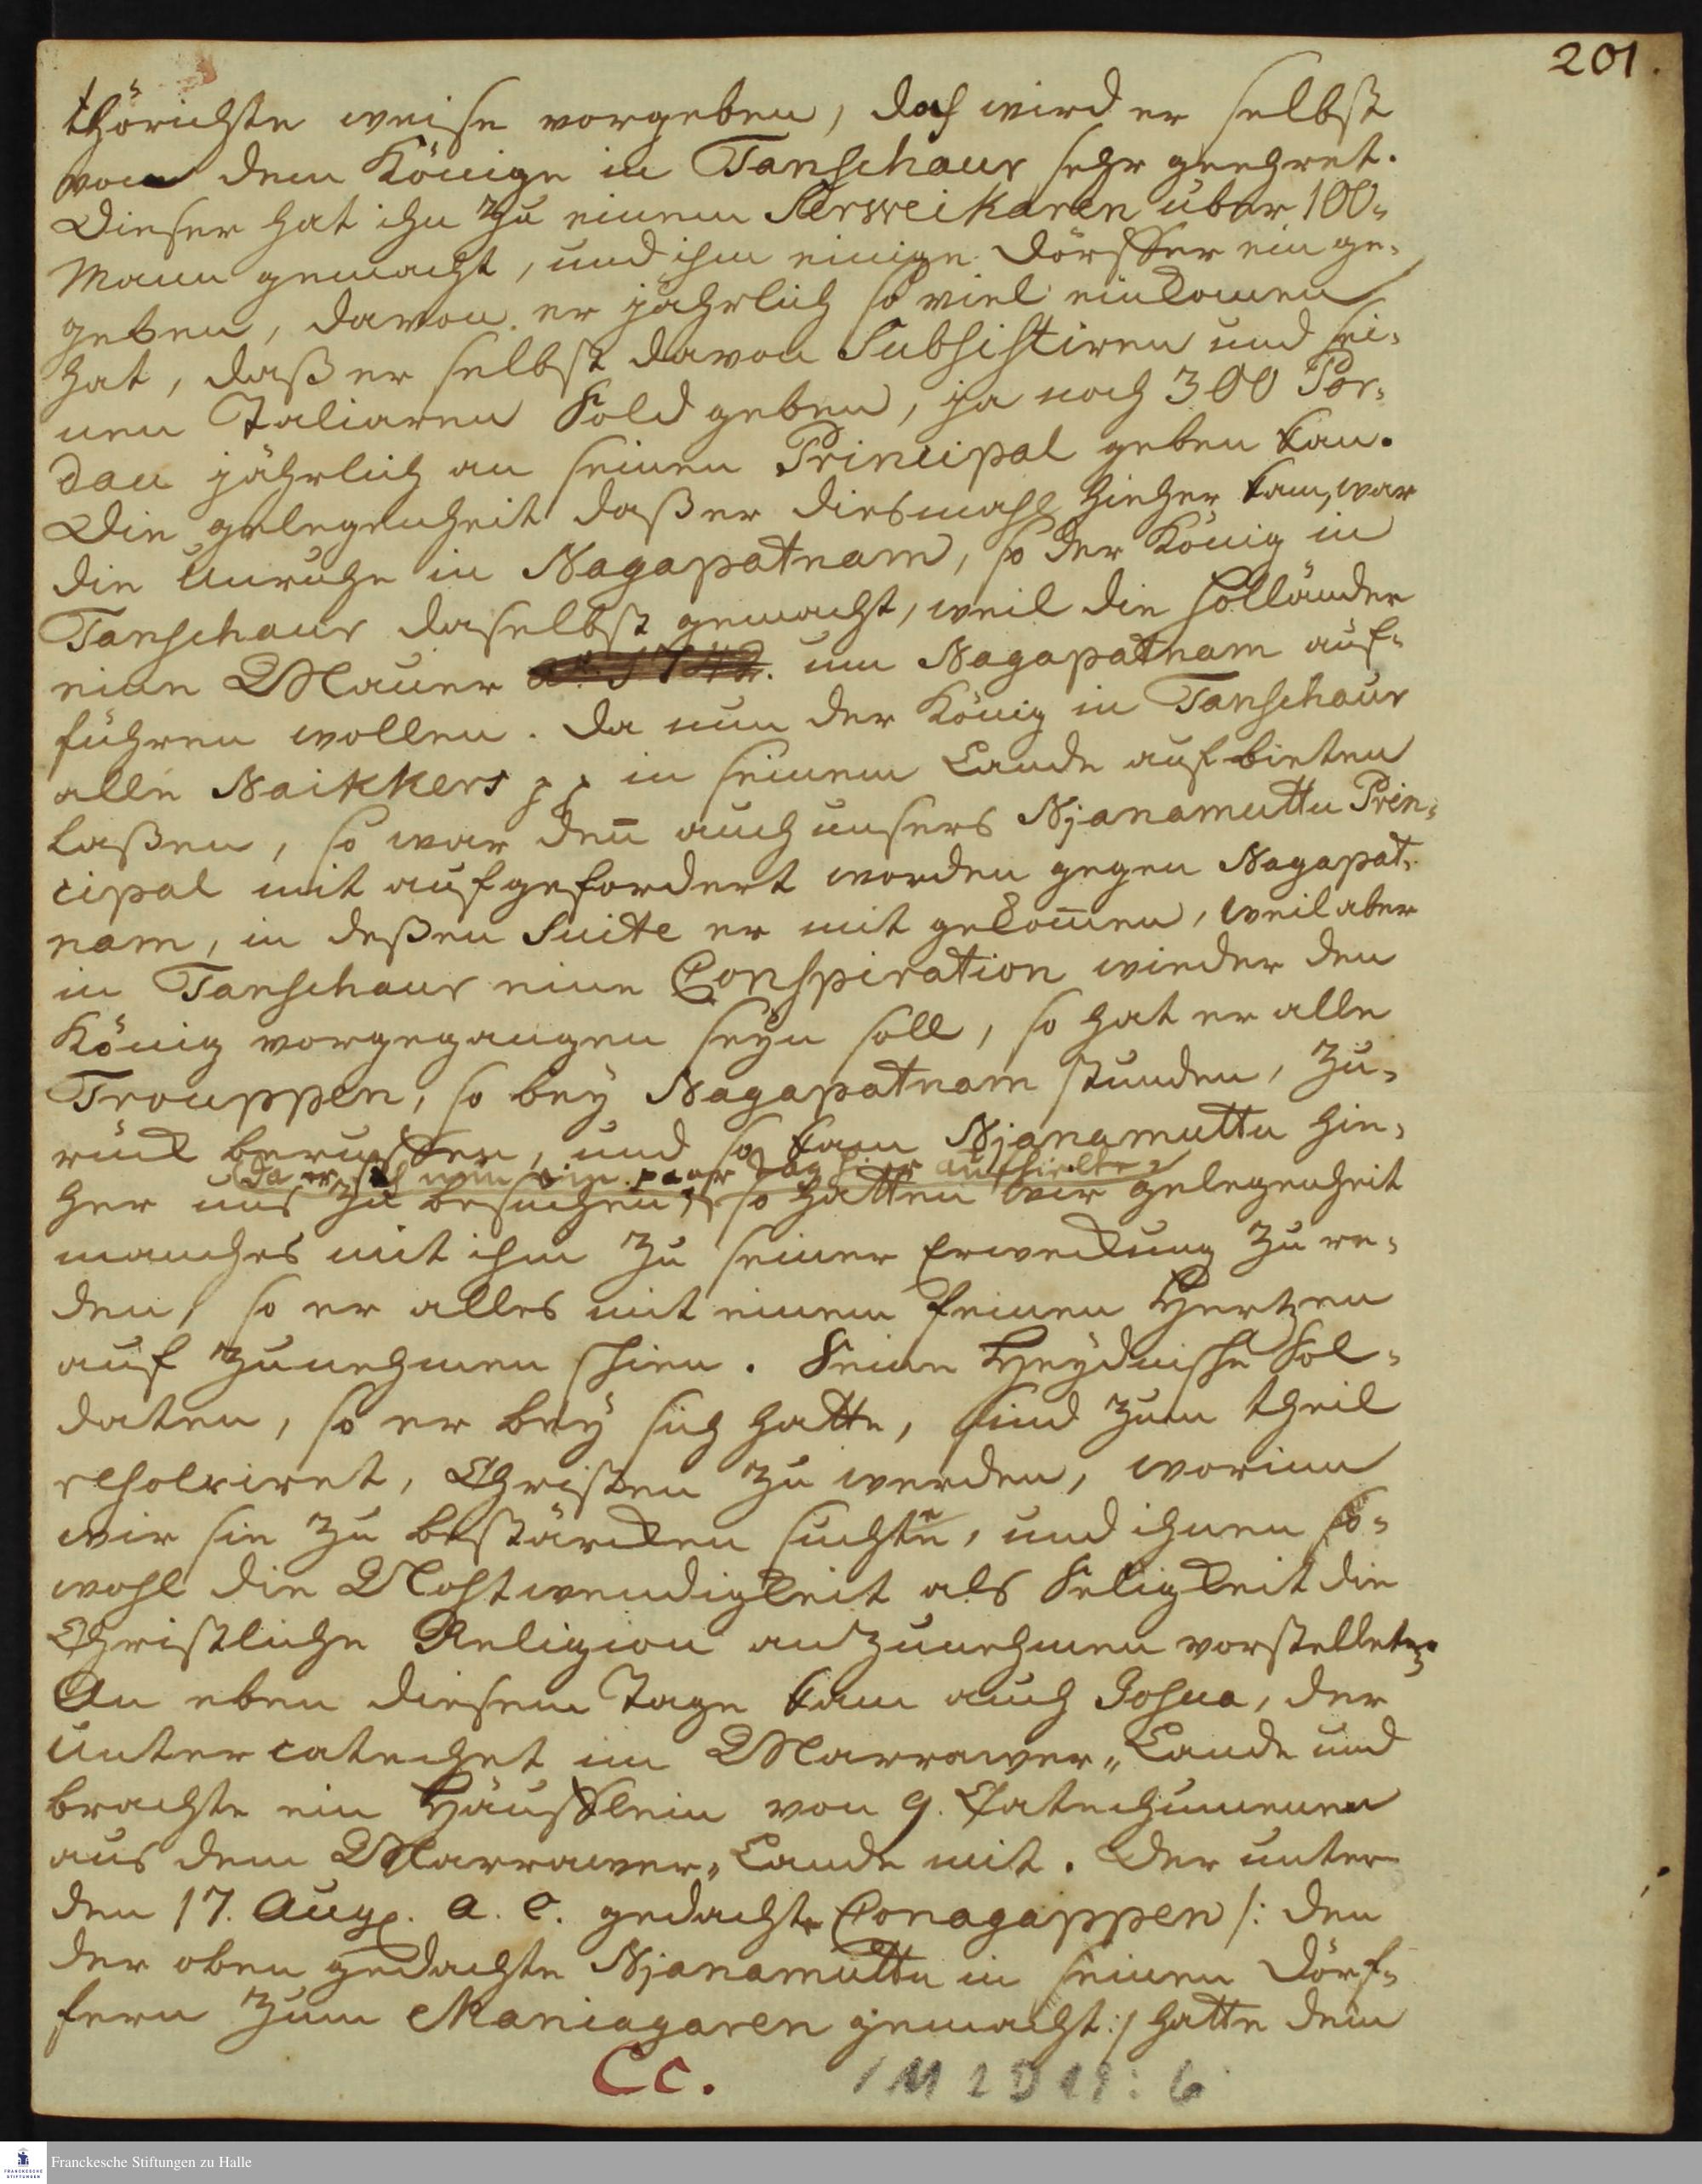 201.
thörichste weise vorgeben, doch wird er selbst
von dem Könige in Tanschaur sehr geehret.
Dieser hat ihn zu einem Serweikaren über 100-
Mann gemacht, und ihm einige Dörffer einge-
geben, davon er jährlich so viel einkomen
hat, daß er selbst davon Subsistiren und sei-
nen Taliaren Sold geben, ja noch 300 Por-
dau jährlich an seinen Principal geben kan.
Die gelegenheit daß er diesmahl hieher kam, war
die Unruhe in Nagapatnam, so der König in
Tanschaur daselbst gemacht, weil die Holländer
eine Mauer ao. 1742. um Nagapatnam auf-
führen wollen. Da nun der König in Tanschaur
alle Naikkers pp in seinem Lande aufbieten
laßen, so war den̄ auch unsers Njanamuttu Prin-
cipal mit aufgefordert worden gegen Nagapat-
nam, in deßen Suite er mit gekom̄en, weil aber
in Tanschaur eine Conspiration wieder den
König vorgegangen seyn soll, so hat er alle
Trouppen, so bey Nagapatnam stunden, zu-
rück beruffen, und so kam Njanamuttu hie-
da er sich nun ein paar Tag hier aufhielte
her uns zu besuchen, so hatten wir gelegenheit
manches mit ihm zu seiner Erweckung zu re-
den, so er alles mit einem feinen Hertzen
auf zunehmen schien. Seine Heydnische Sol-
daten, so er bey sich hatte, sind zum theil
resolviret, Christen zu werden, worinn
wir sie zu bestärcken suchten, und ihnen so-
wohl die Nothwendigkeit als Seligkeit die
Christliche Religion anzunehmen vorstelleten.
An eben diesem Tage kam auch Josua, der
Untercatechet im Marrawer-Lande und
brachte ein Häufflein von 9. Catechumenen
aus dem Marrawer-Lande mit. Der unter
den 17. Aug. a. c. gedachte Conagappen /: den
der oben gedachte Njanamuttu in seinen Dörf-
fern zum Maniagaren gemacht :/ hatte dem
Cc. 1 M 2 D 19 : 6
Franckesche Stiftungen zu Halle